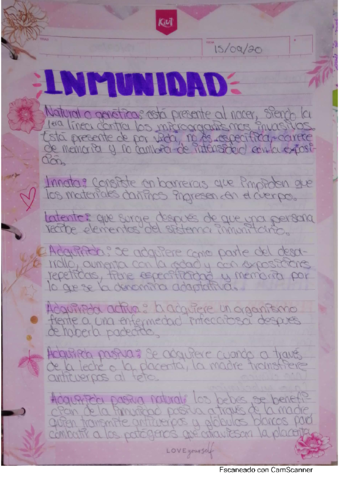 KIUT
15/09/20
INMUNIDAD
Natural o genética: está presente al nacer, siendo la
1era línea contra los microorganismos invasivos
está presente de por vida, no es específica, carece
de memoria y no cambia de intensidad en la exposi-
ción.
Innata: Consiste en barreras que impiden que
los materiales dañinos ingresen en el cuerpo.
Latente: que surge después de que una persona
recibe elementos del sistema inmunitario.
Adquirida: se adquiere como parte del desa-
rrollo, aumenta con la edad y con exposiciones
repetitivas, tiene especificidad y memoria por
lo que se la denomina adaptativa.
Adquirida activa: la adquiere un organismo
frente a una enfermedad infecciosa después
de haberla padecido.
Adquirida pasiva: Se adquiere cuando a través
de la leche o la placenta, la madre transfiere
anticuerpos al feto.
Adquirida pasiva natural: los bebés se benefi-
cian de la inmunidad pasiva a través de la madre
quien transmite anticuerpos y glóbulos blancos para
combatir a los patógenos que atraviesan la placenta
LOVE yourself
Escaneado con CamScanner